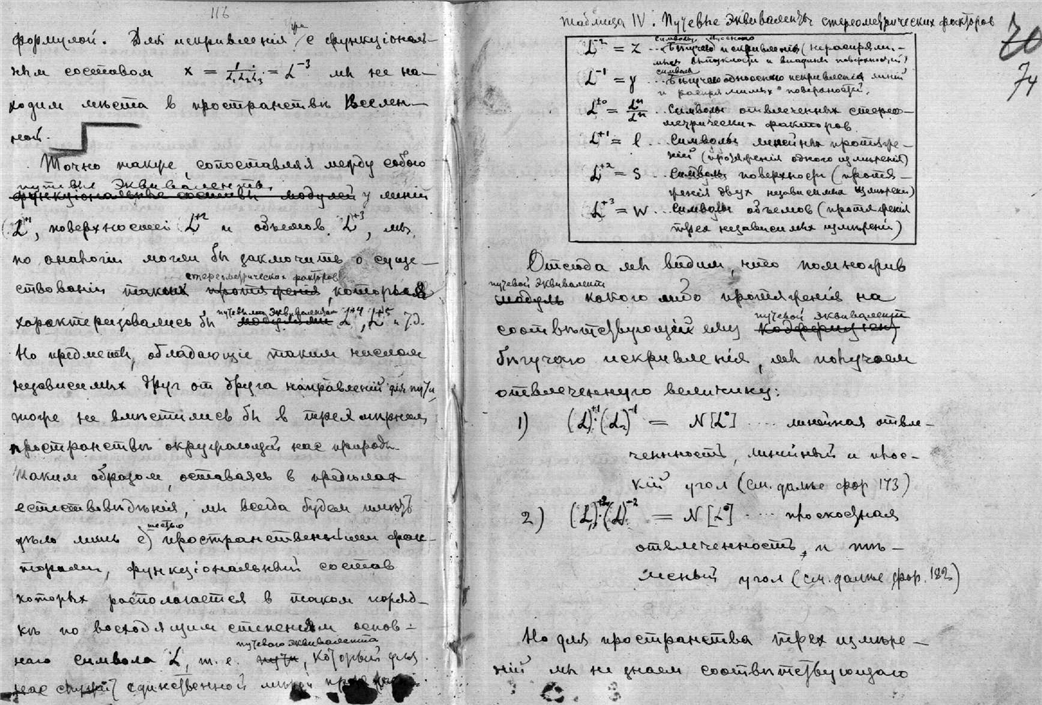 116
формулой. Для искривленія же с функціональ-
ным составом x = 1/L₁L₂L₃ = L⁻³ мы не на-
ходим мѣста в пространствѣ Вселен-
ной.
Точно также, сопоставляя между собою
путевые эквиваленты
функціональные составы модулей у линій
L⁺¹, поверхностей L⁺² и объемов L⁺³, мы
по аналогіи могли бы заключить о суще-
стереометрических факторов
ствованіи таких протяженія, которые
характеризовались бы путевыми эквивалентами модулями L⁺⁴, L⁺⁵ и т.д.
Но предметы, обладающіе таким числом
независимых друг от друга направленій для пути
тоже не вмѣстились бы в трехмѣрном
пространствѣ окружающей нас природы.
Таким образом, оставаясь в предѣлах
естествовѣдѣнія, мы всегда будем имѣть
дѣло лишь с шестью пространственными фак-
торами, функціональный состав
которых располагается в таком поряд-
кѣ по восходящим степеням основ-
путевого эквивалента
наго символа L, т.е. пути, который для
нас единственной
Таблица IV. Путевые эквиваленты стереометрических факторов
L⁻² = z ... символы плоскостного бѣгучаго искривленія (нераспрями-
мых выпуклости и впадины поверхностей)
L⁻¹ = y ... символы бѣгучаго одноосного искривленія линій
и распрямимых поверхностей.
L^±0 = Lⁿ/Lⁿ ... Символы отвлеченных стерео-
метрических факторов
L⁺¹ = l ... Символы линейных протяже-
ній (протяженія одного измѣренія)
L⁺² = s ... Символы поверхности (протя-
женія двух независимых измѣреній)
L⁺³ = w ... Символы объемов (протяженія
трех независимых измѣреній)
70
74
Отсюда мы видим, что помножив
путевой эквивалент
модуль какого либо протяженія на
путевой эквивалент
соотвѣтствующій ему коэффиціент
бѣгучаго искривленія, мы получаем
отвлеченную величину:
1) (L)⁺¹·(L)⁻¹ = N[L°] .... линейная отвле-
ченность, линейный и плос-
кій угол (см. далѣе фор 173)
2) (L)⁺²·(L)⁻² = N[L°] .... плоскостная
отвлеченность, и тѣ-
лесный угол (см. далѣе фор. 182)
Но для пространства трех измѣре-
ній мы не знаем соотвѣтствующаго